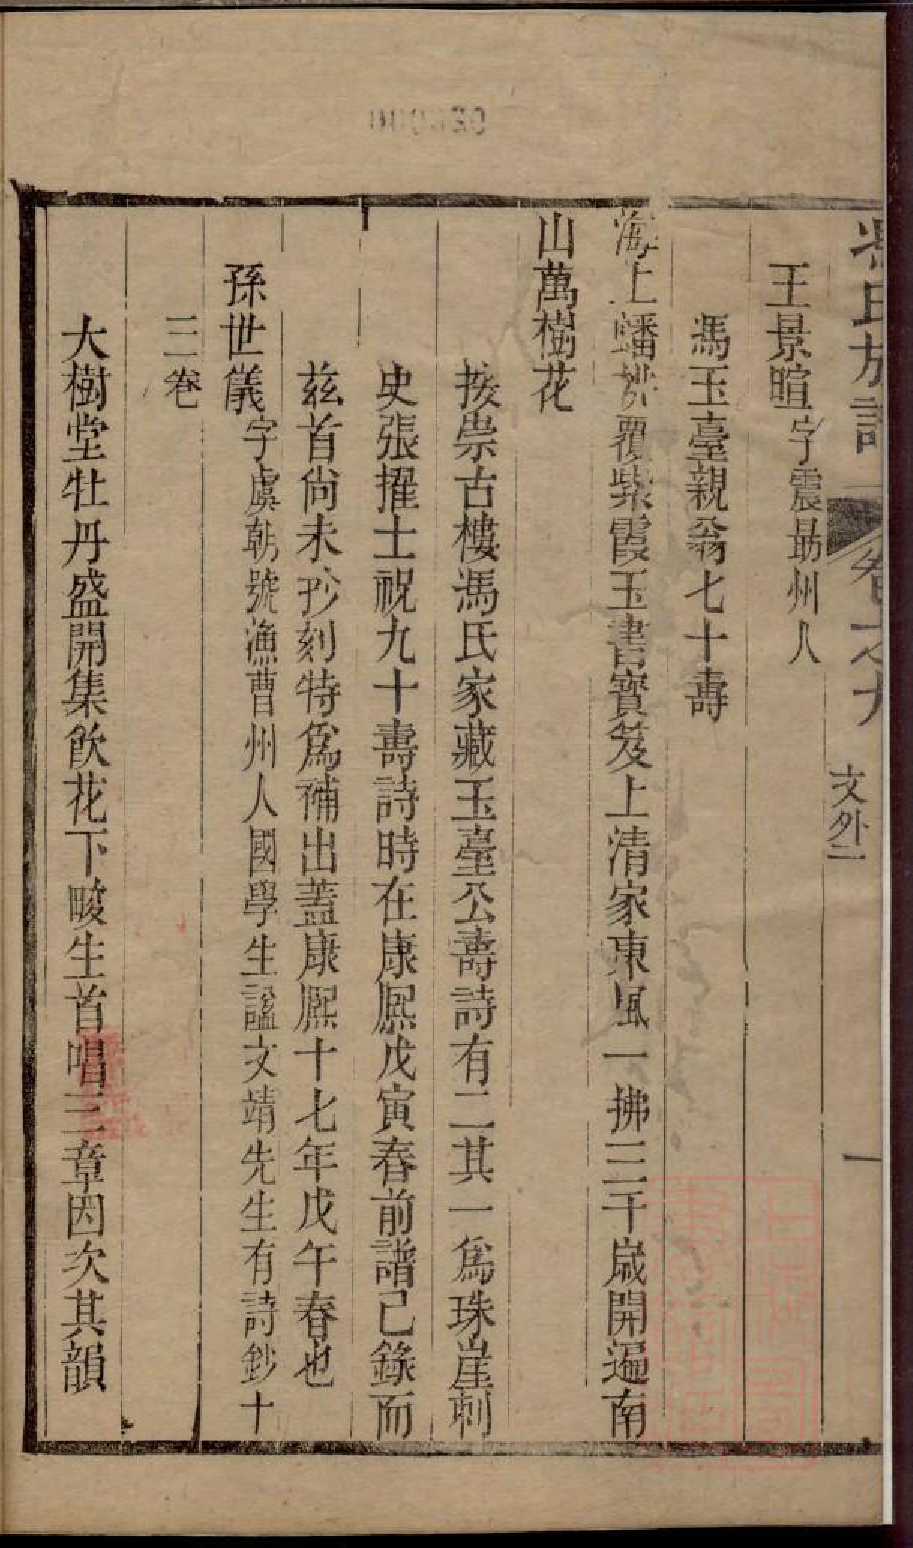 馮氏族譜 卷之九 文外一 一
王景暄字震勗州人
馮玉臺親翁七十壽
海上蟠桃覆紫霞玉書寶笈上清家東風一拂三千歲開遍南
山萬樹花
按崇古樓馮氏家藏玉臺公壽詩有二其一爲珠崖刺
史張擢士祝九十壽詩時在康熙戊寅春前譜已錄而
茲首尙未抄刻特爲補出蓋康熙十七年戊午春也
孫世儀字虞朝號漁曹州人國學生諡文靖先生有詩鈔十
二卷
大樹堂牡丹盛開集飮花下畯生首唱三章因次其韻